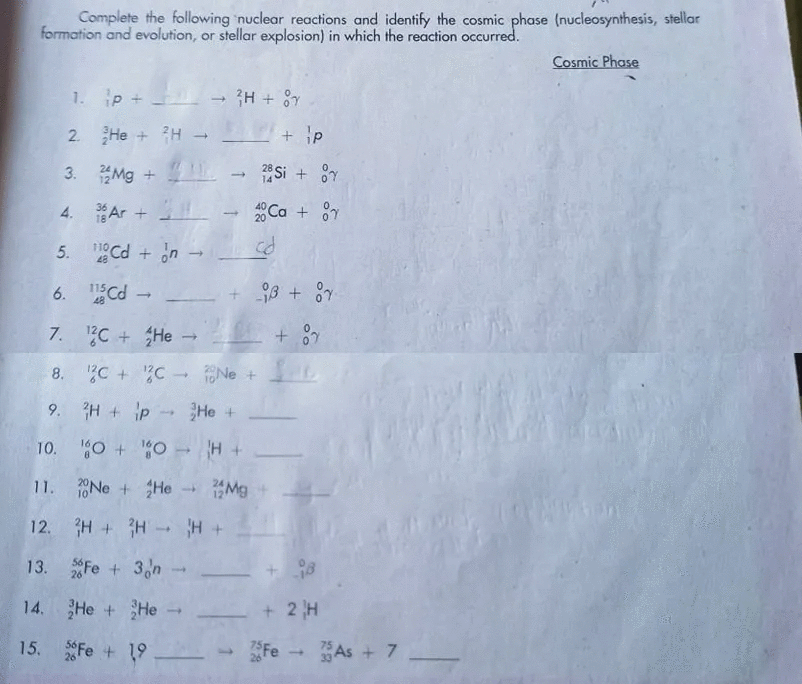 Complete the following nuclear reactions and identify the cosmic phase (nucleosynthesis, stellar
formation and evolution, or stellar explosion) in which the reaction occurred.
Cosmic Phase
1. ¹₁p + ____ → ²₁H + ⁰₀γ
2. ³₂He + ²₁H → ____ + ¹₁p
3. ²⁴₁₂Mg + ____ → ²⁸₁₄Si + ⁰₀γ
4. ³⁶₁₈Ar + ____ → ⁴⁰₂₀Ca + ⁰₀γ
5. ¹¹⁰₄₈Cd + ¹₀n → ____ cd
6. ¹¹⁵₄₈Cd → ____ + ⁰₋₁β + ⁰₀γ
7. ¹²₆C + ⁴₂He → ____ + ⁰₀γ
8. ¹²₆C + ¹²₆C → ²⁰₁₀Ne + ____
9. ²₁H + ¹₁p → ³₂He + ____
10. ¹⁶₈O + ¹⁶₈O → ¹₁H + ____
11. ²⁰₁₀Ne + ⁴₂He → ²⁴₁₂Mg + ____
12. ²₁H + ²₁H → ¹₁H + ____
13. ⁵⁶₂₆Fe + 3¹₀n → ____ + ⁰₋₁β
14. ³₂He + ³₂He → ____ + 2¹₁H
15. ⁵⁶₂₆Fe + 19 ____ → ⁷⁵₂₆Fe → ⁷⁵₃₃As + 7 ____